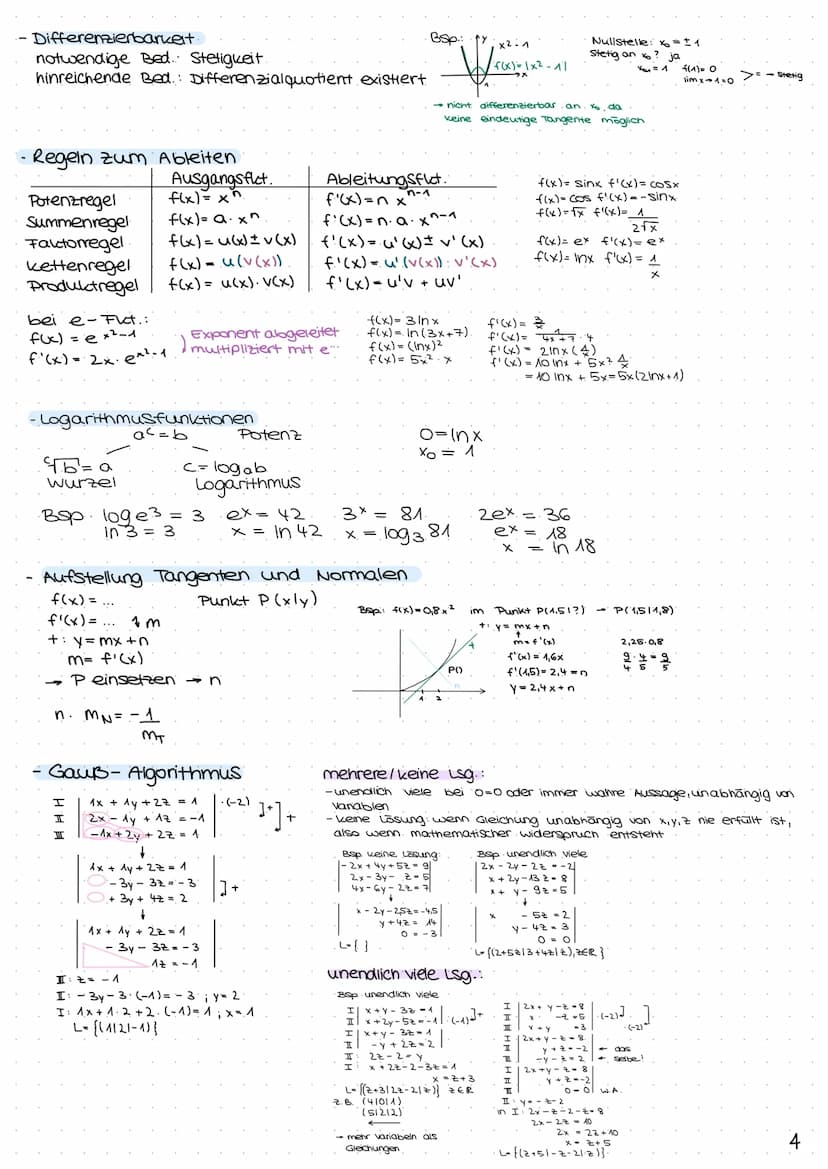 - Differenzierbarkeit
notwendige Bed.: Stetigkeit
hinreichende Bed.: Differenzialquotient existiert
Bsp.: y x²-1
f(x)=|x²-1|
x
1
Nullstelle: x₀ = ±1
Stetig an x₀? ja
f(1)=0
lim x→1=0 >= → stetig
→ nicht differenzierbar an x₀, da
keine eindeutige Tangente möglich
- Regeln zum Ableiten
Ausgangsfkt. Ableitungsfkt.
Potenzregel f(x)= xⁿ f'(x)= n xⁿ⁻¹
Summenregel f(x)= a·xⁿ f'(x)= n·a·xⁿ⁻¹
Faktorregel f(x)= u(x)±v(x) f'(x)= u'(x)± v'(x)
Kettenregel f(x)= u(v(x)) f'(x)= u'(v(x))·v'(x)
Produktregel f(x)= u(x)·v(x) f'(x)= u'v + uv'
f(x)= sinx f'(x)= cosx
f(x)= cos f'(x)= -sinx
f(x)=√x f'(x)= 1/2√x
f(x)= eˣ f'(x)= eˣ
f(x)= lnx f'(x)= 1/x
bei e-Fkt.:
f(x) = e^x²-1
f'(x) = 2x·e^x²-1
Exponent abgeleitet
multipliziert mit e^...
f(x)= 3lnx f'(x)= 3/x
f(x)= ln(3x+7) f'(x)= 1/4x+7 · 4
f(x)= (lnx)² f'(x)= 2lnx(1/x)
f(x)= 5x²·x f'(x)= 10lnx + 5x² 1/x
= 10 lnx + 5x=5x(2lnx+1)
- Logarithmusfunktionen
aᶜ=b Potenz
ᶜ√b = a c = logₐb
Wurzel Logarithmus
0=lnx
x₀ = 1
Bsp. log e³ = 3 eˣ = 42 3ˣ = 81 2eˣ = 36
ln 3 = 3 x = ln 42 x = log₃ 81 eˣ = 18
x = ln 18
- Aufstellung Tangenten und Normalen
f(x)= ... Punkt P(x|y)
f'(x)= ... m
t: y=mx+n
m= f'(x)
→ P einsetzen → n
n. mN = - 1/mT
Bsp: f(x)=0,8x² im Punkt P(1,5|?) → P(1,5|1,8)
t: y= mx+n
m=f'(x)
f'(x) = 1,6x
f'(1,5)= 2,4 = n
y = 2,4x+n
2,25·0,8
9/4 · 4/5 = 9/5
t
P()
1 2
- Gauß-Algorithmus
I 1x + 1y + 2z = 1 ·(-2)
II 2x - 1y + 1z = -1
III -1x + 2y + 2z = 1
1x + 1y + 2z = 1
-3y - 3z = -3
+ 3y + 4z = 2
1x + 1y + 2z = 1
- 3y - 3z = -3
1z = -1
III: z = -1
II: -3y - 3·(-1) = -3 ; y=2
I: 1x + 1·2 + 2·(-1) = 1 ; x=1
L={(1|2|-1)}
mehrere/keine Lsg.:
-unendlich viele bei 0=0 oder immer wahre Aussage, unabhängig von
Variablen
-keine Lösung: wenn Gleichung unabhängig von x,y,z nie erfüllt ist,
also wenn mathematischer Widerspruch entsteht
Bsp keine Lösung:
-2x + 4y + 5z = 9
2x - 3y - z = 5
4x - 6y - 2z = 7
x - 2y - 2,5z = -4,5
y + 4z = 14
0 = -3
L={ }
Bsp. unendlich viele
2x - 2y - 2z = -2
x + 2y - 13z = 8
x + y - 9z = 5
x - 5z = 2
y - 4z = 3
0 = 0
L={(2+5z|3+4z|z), z∈R}
unendlich viele Lsg.:
Bsp unendlich viele
I x+y-3z=1
II x+2y-5z=-1 ·(-1)
I x+y-3z=1
II -y+2z=2
II: 2z-2=y
I: x+2z-2-3z=1
x=z+3
L={(z+3|2z-2|z)} z∈R
z.B. (4|0|1)
(5|2|2)
→ mehr Variabeln als
Gleichungen
I 2x+y-z=8 ·(-2)
II x -z=5
III x+y =3 ·(-2)
I 2x+y-z=8
II y+z=-2 ← das
III -y-z=2 ← selbe!
I 2x+y-z=8
II y+z=-2
III 0=0 w.A.
II: y=-z-2
in I: 2x-z-2-z=8
2x-2z=10
2x = 2z+10
x= z+5
L={(z+5|-z-2|z)}
4